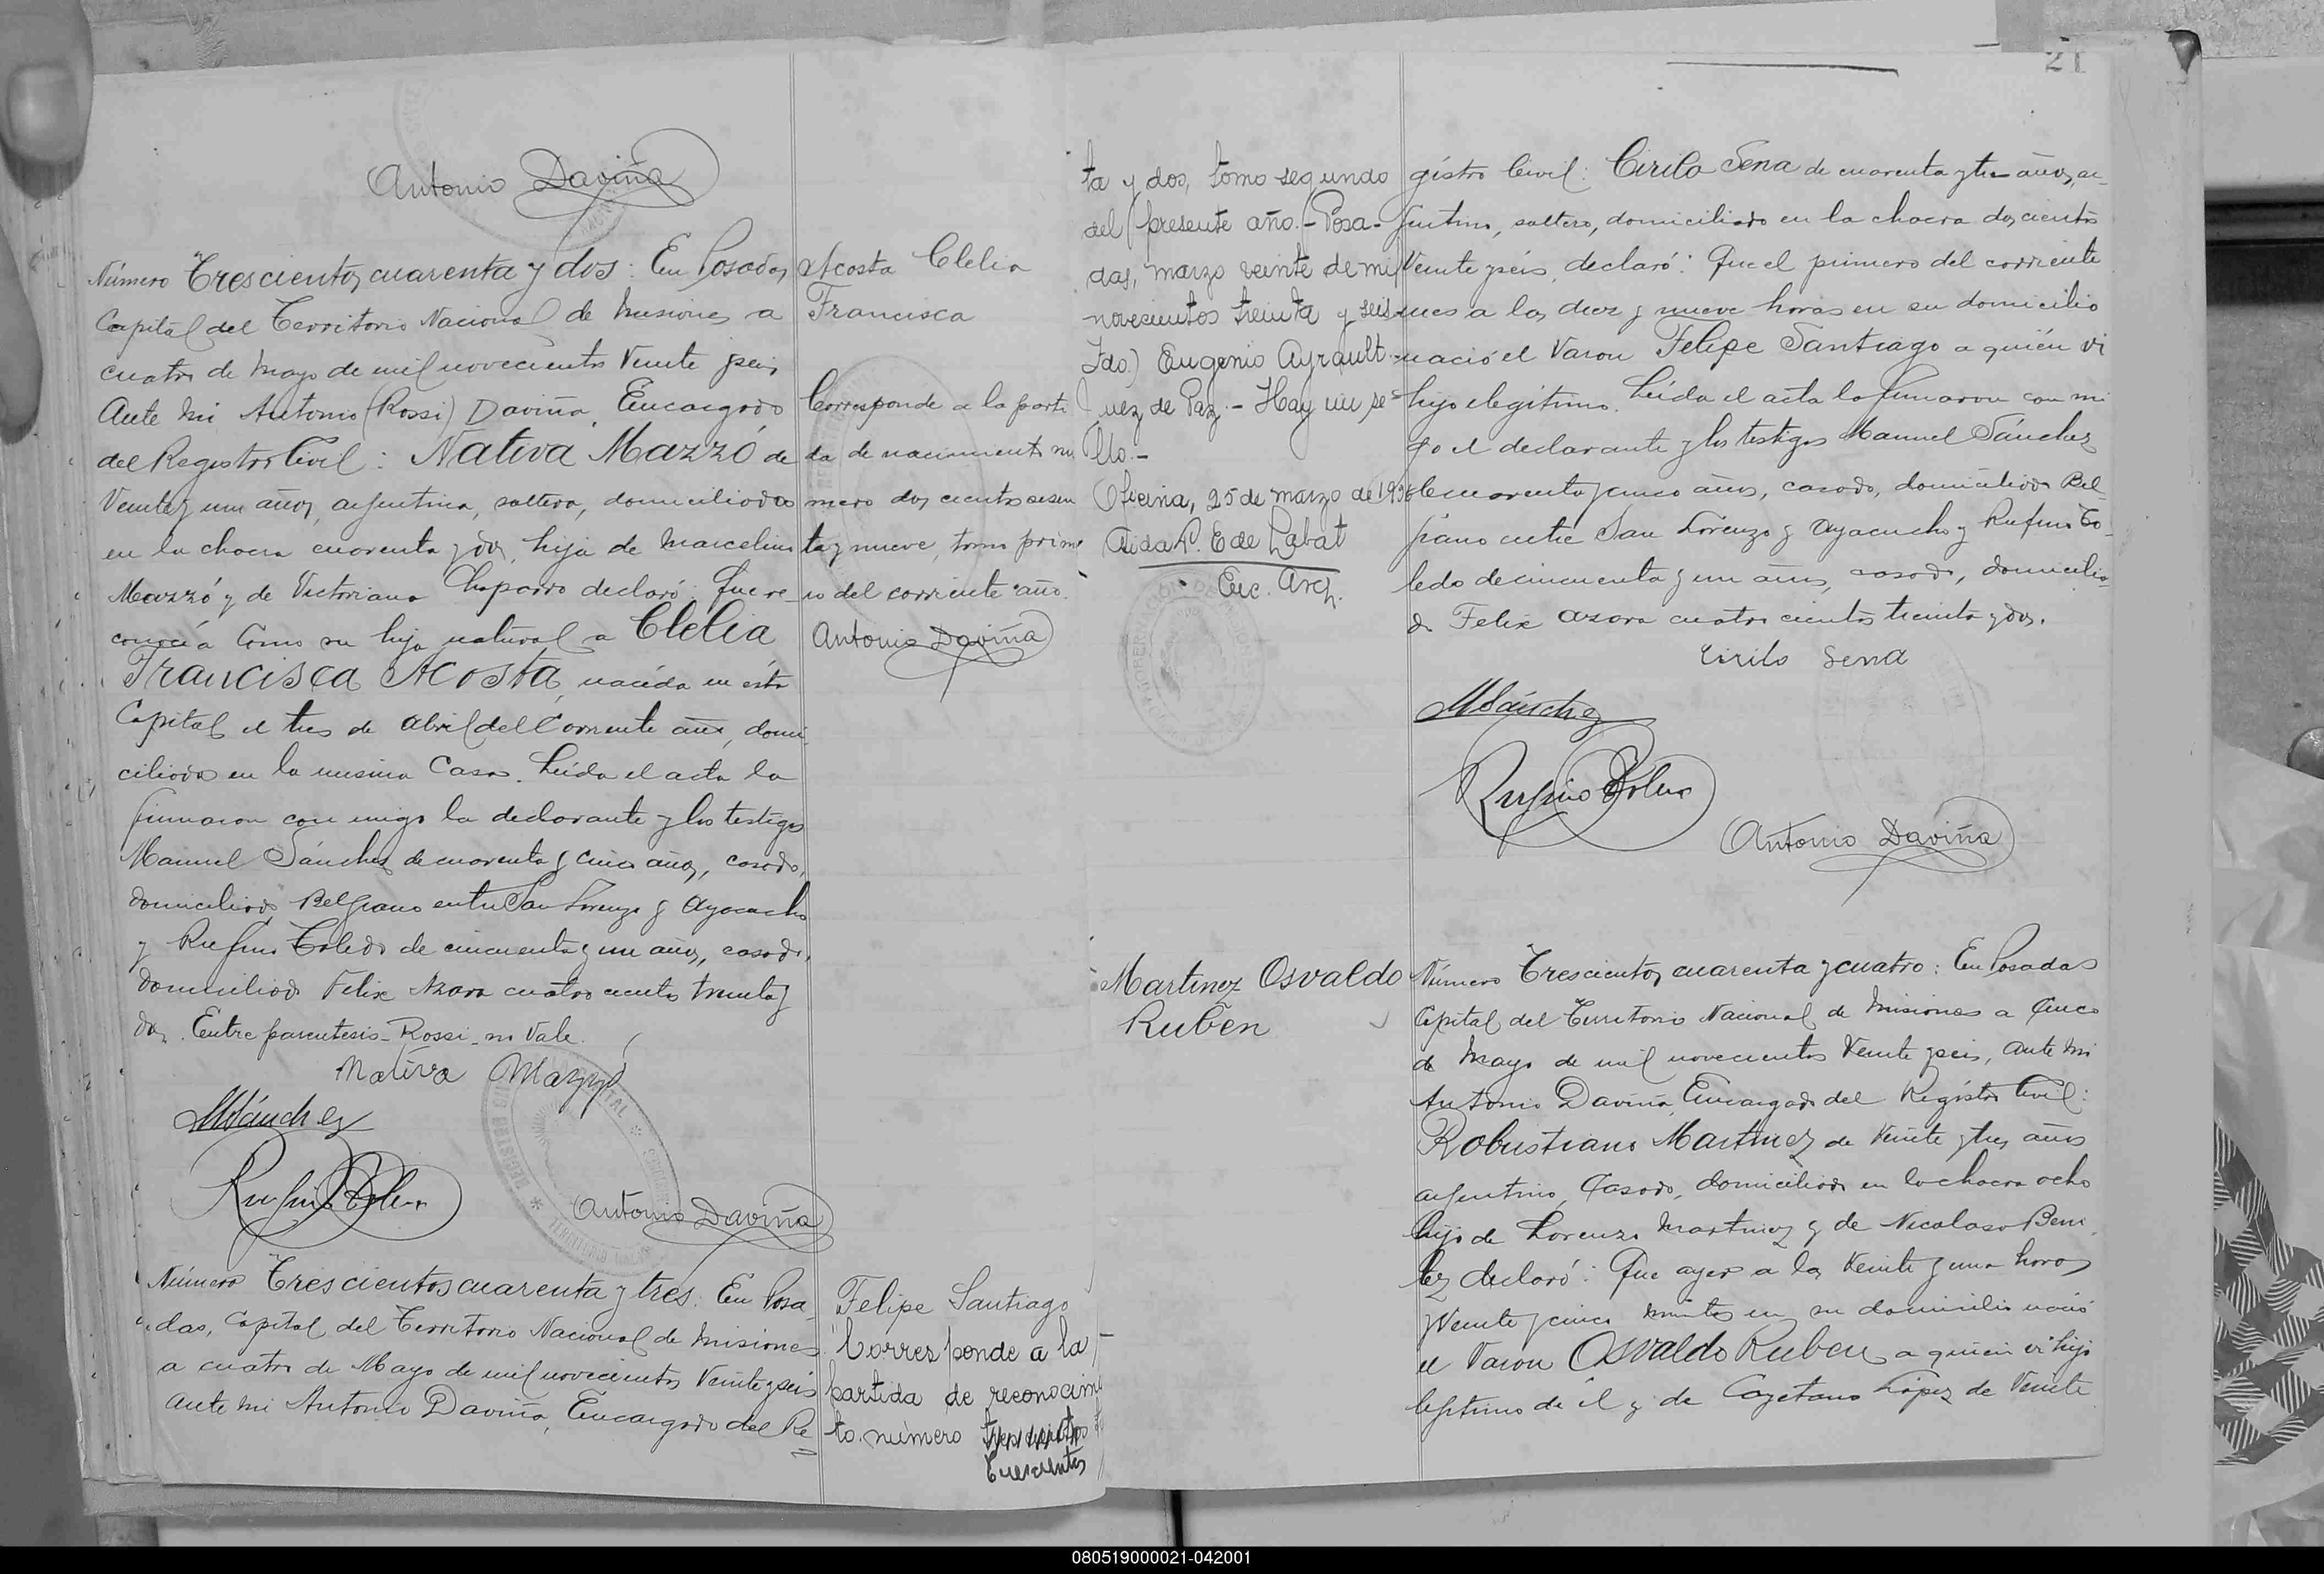 Antonio Daviña
Número Trescientos cuarenta y dos: En Posadas,
Capital del Territorio Nacional de Misiones a
cuatro de Mayo de mil novecientos Veinte y seis,
Ante mi Antonio (Rossi) Daviña, Encargado
del Registro Civil: Nativa Mazzó de
Veinte y un años, argentina, soltera, domiciliada
en la chacra cuarenta y dos, hija de Marcelino
Mazzó y de Victoriana Chaparro declaró: Que re-
conocía como su hija natural a Clelia
Francisca Acosta, nacida en ésta
Capital el tres de Abril del Corriente año, domi-
ciliada en la misma Casa. Leída el acta la
firmaron con migo la declarante y los testigos
Manuel Sánchez de cuarenta y cinco años, casado,
domiciliado Belgrano entre San Lorenzo y Ayacucho
y Rufino Toledo de cincuenta y un años, casado,
domiciliado Felix Azara cuatro cientos treinta y
dos. Entre parentesis - Rossi - no Vale.
Nativa Mazzó
MSánchez
Rufino Toledo
Antonio Daviña
Acosta Clelia
Francisca
Corresponde a la parti
da de nacimiento nu
mero dos cientos sesen
ta y nueve, tomo prime
ro del corriente año.
Antonio Daviña
Número Trescientos cuarenta y tres: En Posa-
das, Capital del Territorio Nacional de Misiones
a cuatro de Mayo de mil novecientos Veinte y seis
Ante mi Antonio Daviña, Encargado del Re=
Felipe Santiago
Corresponde a la
partida de reconocim
to. número
Trescientos
ta y dos, tomo segundo
del presente año.- Posa-
das, marzo veinte de mil
novecientos treinta y seis
Fdo.) Eugenio Ayrault.-
Juez de Paz.- Hay un se=
llo.-
Oficina, 25 de marzo de 1936
Aida P. E de Labat
Enc. Arch.
21
gistro Civil: Cirilo Sena de cuarenta y tres años, ar-
gentino, soltero, domiciliado en la chacra dos cientos
Veinte y seis, declaró: Que el primero del corriente
mes a las diez y nueve horas en su domicilio
nació el Varon Felipe Santiago a quién vi
hijo ilegítimo. Leída el acta la firmaron con mi
go el declarante y los testigos Manuel Sánchez
de cuarenta y cinco años, casado, domiciliado Bel-
grano entre San Lorenzo y Ayacucho y Rufino To-
ledo de cincuenta y un años, casado, domicilia-
do Felix Azara cuatro cientos treinta y dos.
Cirilo Sena
MSánchez
Rufino Toledo
Antonio Daviña
Martinez Osvaldo
Ruben
Número Trescientos cuarenta y cuatro: En Posadas
Capital del Territorio Nacional de Misiones a Cinco
de Mayo de mil novecientos Veinte y seis, Ante mi
Antonio Daviña, Encargado del Registro Civil:
Robustiano Martinez de Veinte y tres años
argentino, Casado, domiciliado en la chacra ocho
hijo de Lorenzo Martinez y de Nicolasa Beni
tez declaró: Que ayer a las Veinte y una horas
y Veinte y cinco minutos en su domicilio nació
el Varon Osvaldo Ruben a quién vi hijo
legítimo de él y de Cayetana López de Veinte
080519000021-042001